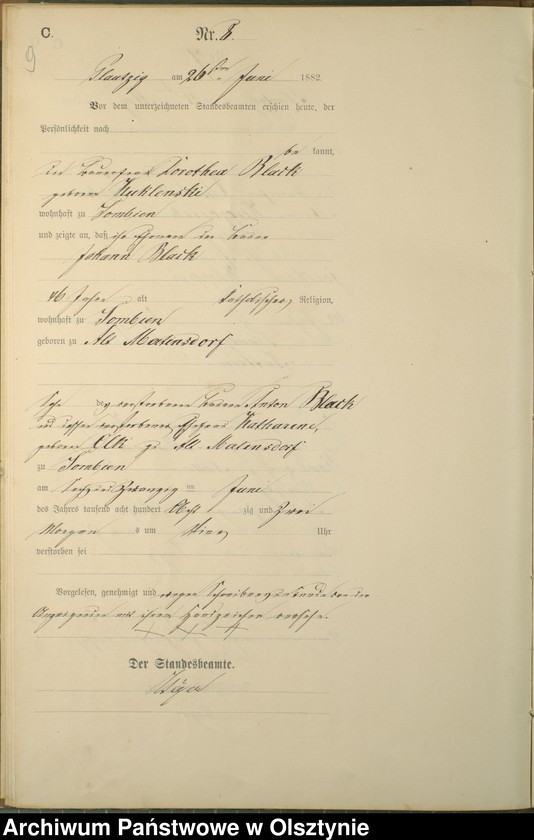 C.
Nr. 8.
9
Plautzig am 26ten Juni 1882.
Vor dem unterzeichneten Standesbeamten erschien heute, der
Persönlichkeit nach
be kannt,
Dorothea Black
geborene Kuklenski
wohnhaft zu Tombien
und zeigte an, daß ihr Ehemann
Johann Black
46 Jahre alt katholischer Religion,
wohnhaft zu Tombien
geboren zu Alt Matensdorf
Sohn des verstorbenen Anton Black
und dessen verstorbenen Ehefrau Katharene,
geborene zu Alt Matensdorf
zu Tombien
am Sechsundzwanzig ten Juni
des Jahres tausend acht hundert Acht zig und Zwei
Morgen s um Uhr
verstorben sei
Vorgelesen, genehmigt und wegen Schreibensunkunde von der
mit ihrem Handzeichen versehen.
+ + +
Der Standesbeamte.